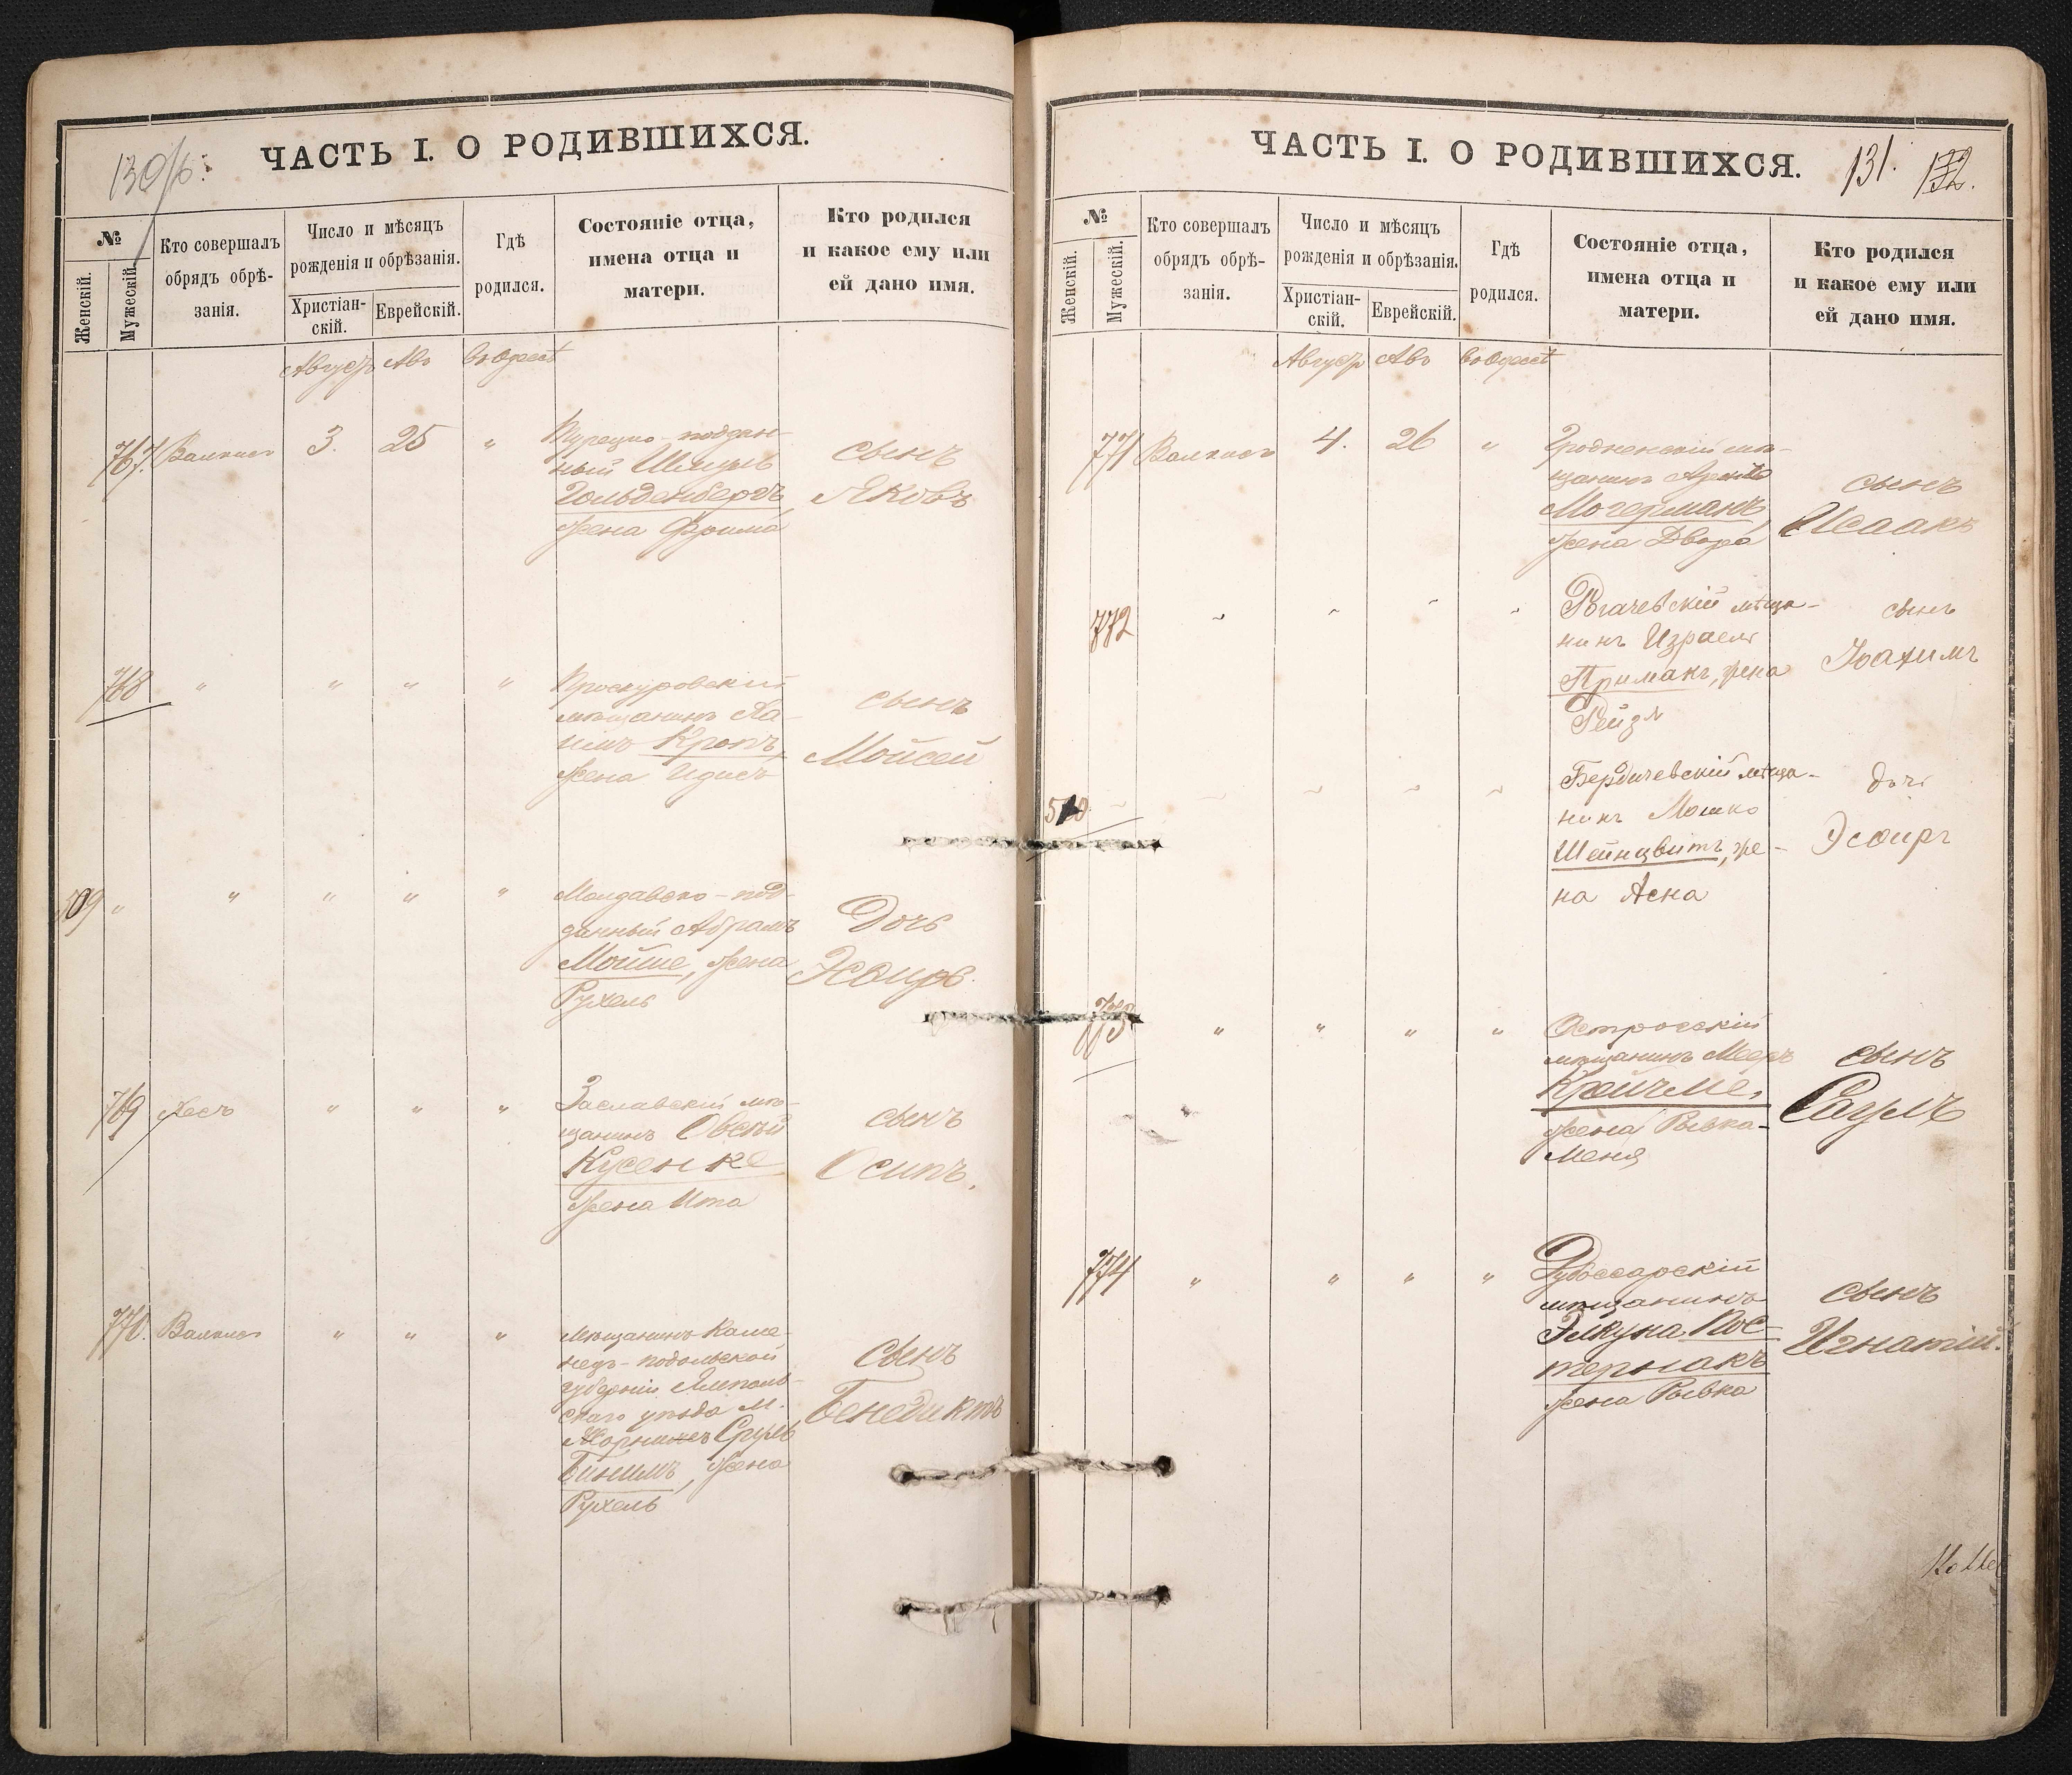 130/б.
ЧАСТЬ I. О РОДИВШИХСЯ.
№
Женскій.
Мужескій.
Кто совершалъ
обрядъ обрѣ-
занія.
Число и мѣсяцъ
рожденія и обрѣзанія.
Христіан-
скій.
Еврейскій.
Гдѣ
родился.
Состояніе отца,
имена отца и
матери.
Кто родился
и какое ему или
ей дано имя.
Августъ Авъ въ Одессѣ
767. 3. 25 "
Турецко-поддан-
ный Шмуль
Гольденбергъ
жена Фрима
сынъ
Яковъ
768 " " " "
Проскуровскій
мѣщанинъ Ха-
имъ Кропъ,
жена Идись
сынъ
Мойсей
509 " " " " "
Молдавско-под-
данный Абрамъ
Мойше, жена
Рухель
Дочь
Эсфирь.
769 " " "
Заславскій мѣ-
щанинъ Овсѣй
Кусенке
жена Ита
сынъ
Осипъ.
770. " " "
Мѣщанинъ Каме-
нецъ-подольской
губерніи Ямполь-
скаго уѣзда м.
Сруль
Бинимъ, жена
Рухель
сынъ
Бенедиктъ
ЧАСТЬ I. О РОДИВШИХСЯ.
131. 132.
№
Женскій.
Мужескій.
Кто совершалъ
обрядъ обрѣ-
занія.
Число и мѣсяцъ
рожденія и обрѣзанія.
Христіан-
скій.
Еврейскій.
Гдѣ
родился.
Состояніе отца,
имена отца и
матери.
Кто родился
и какое ему или
ей дано имя.
Августъ Авъ въ Одессѣ
771 4. 26 "
Гродненскій мѣ-
щанинъ
Могерманъ,
жена Двора
сынъ
Исаакъ
772 " " " "
Рогачевскій мѣща-
нинъ Израель
Примакъ, жена
Рейзя
сынъ
Іоахимъ
510 " " " " "
Бердичевскій мѣща-
нинъ Мошко
Шейнцвитъ, же-
на Асна
дочь
Эсфирь
773 " " " "
Острогскій
мѣщанинъ Мееръ
Крейчме,
жена Рывка-
Меня
сынъ
Саулъ
774 " " " "
Дубоссарскій
мѣщанинъ
Элкуна Пос-
тернакъ
жена Рывка
сынъ
Игнатій.